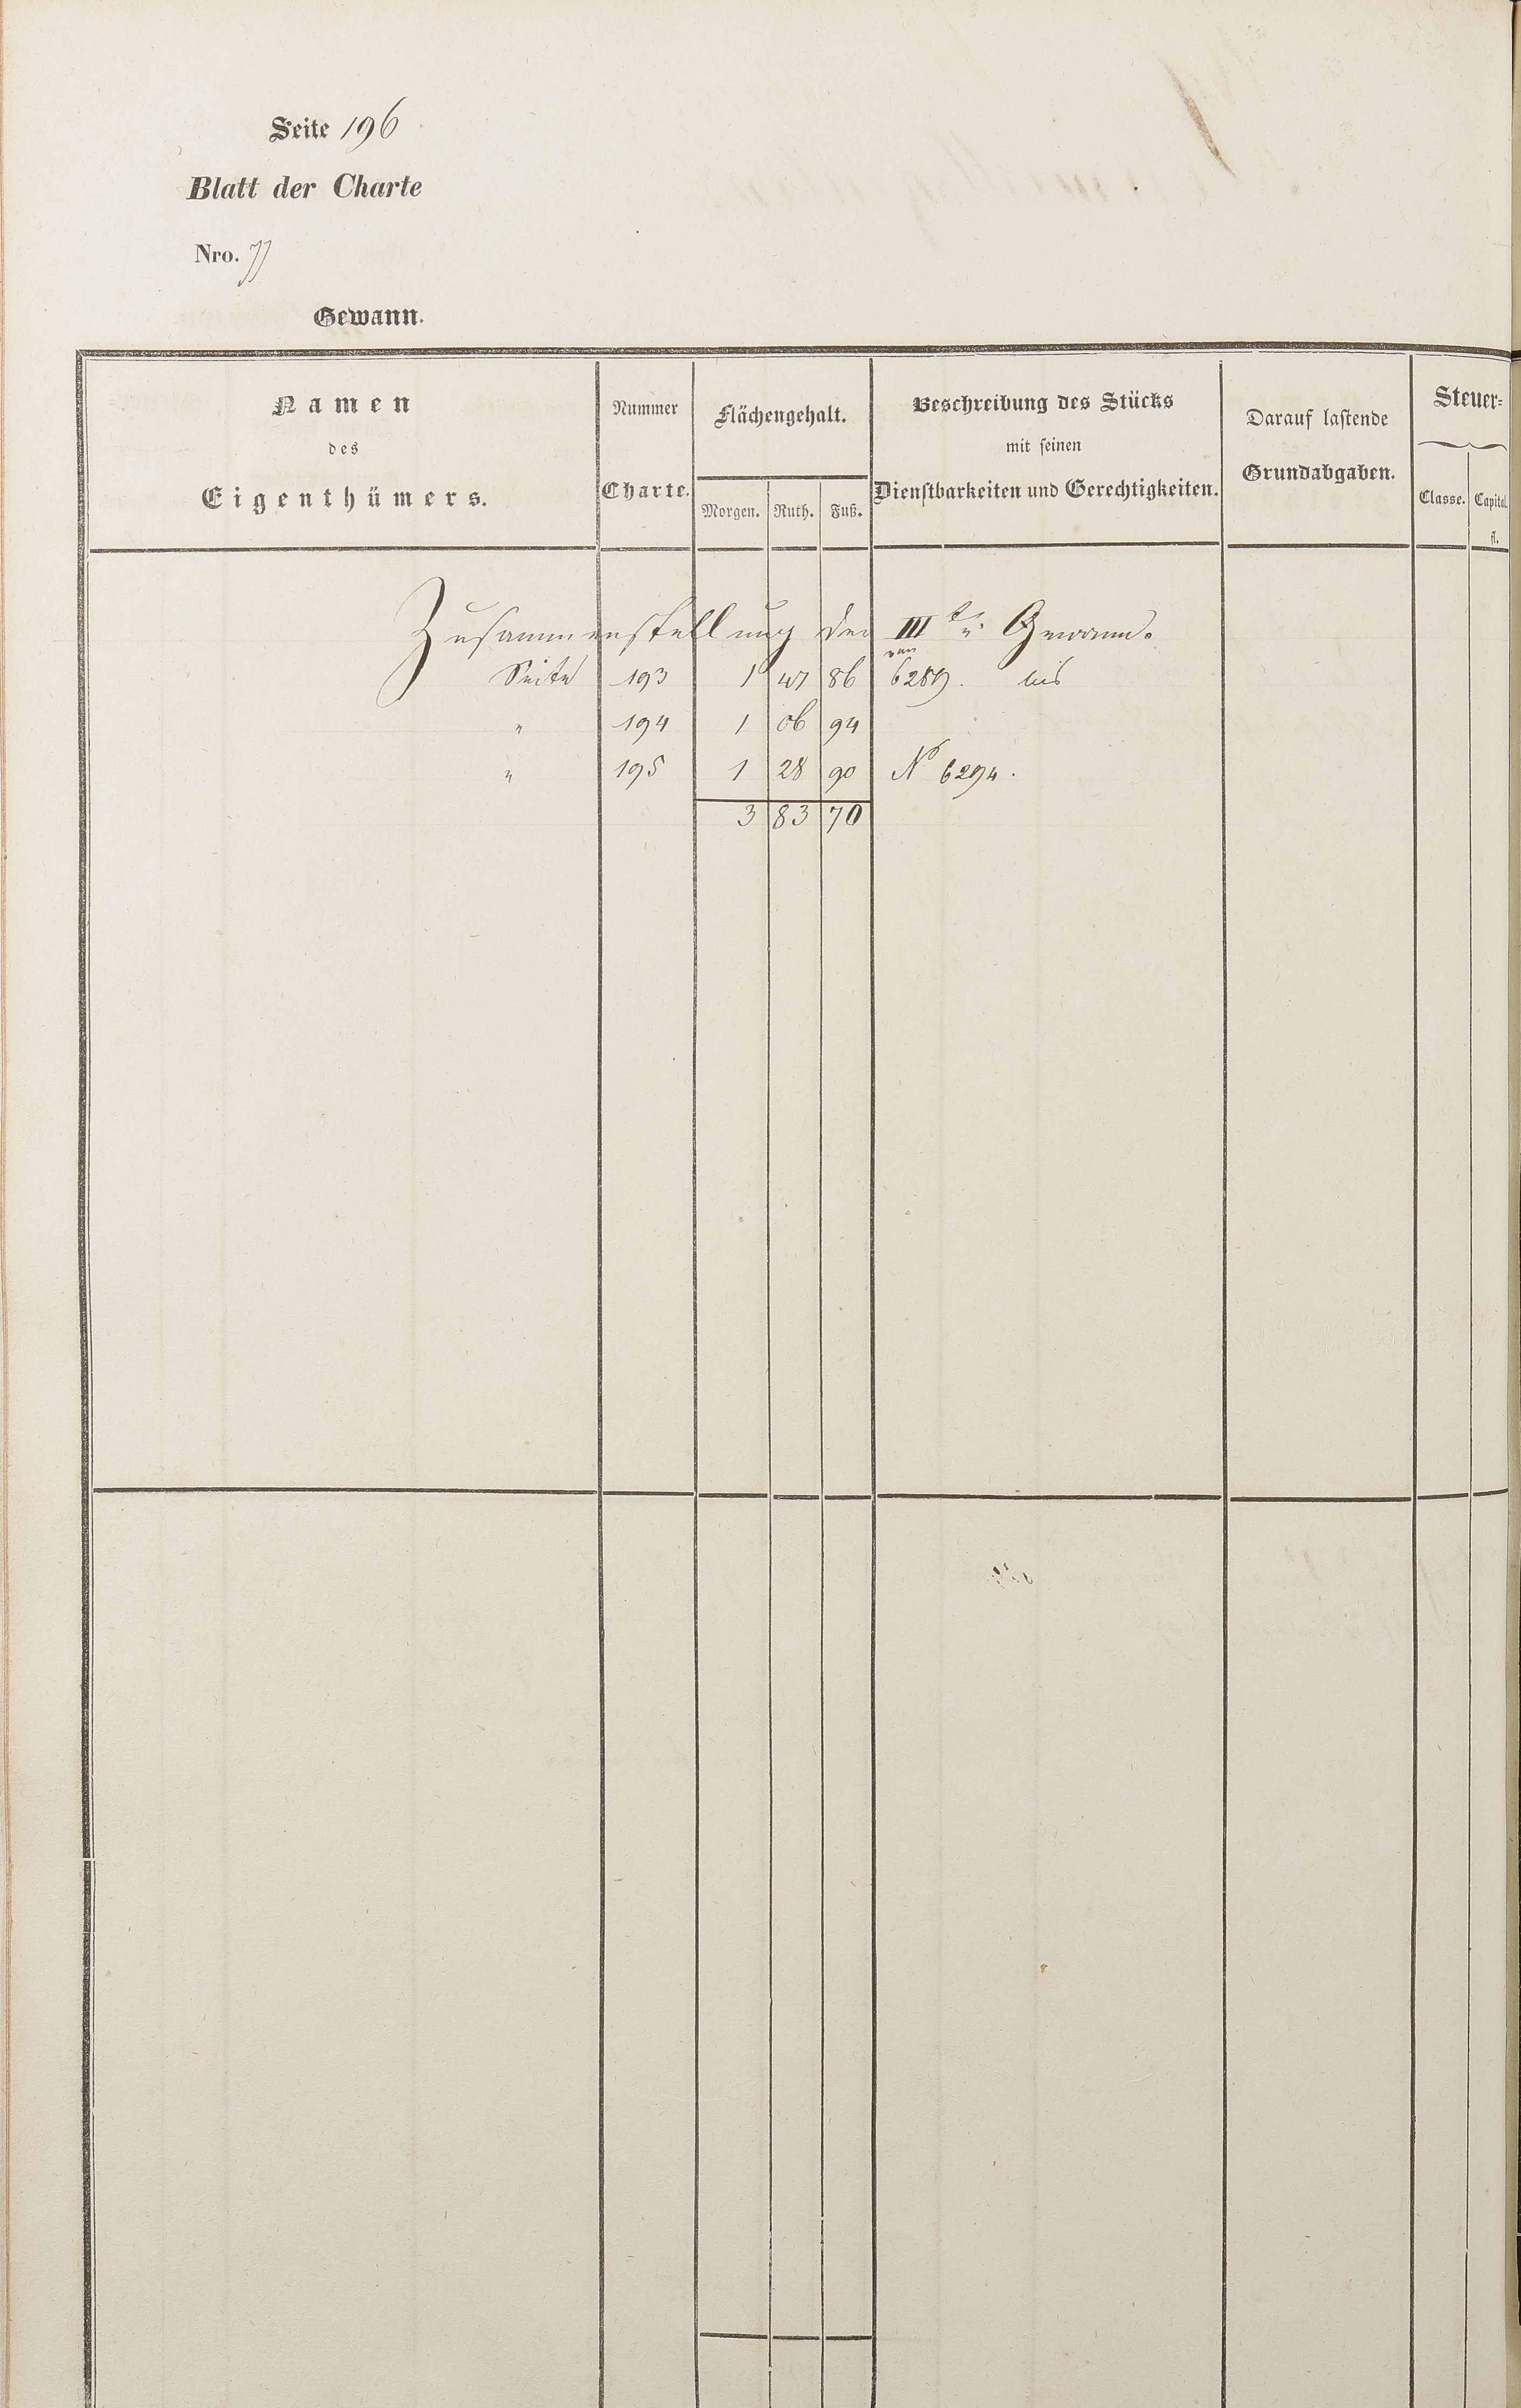 Seite 196
Blatt der Charte
Nro. 77
Gewann.
Namen
des
Eigenthümers.
Nummer
Charte.
Flächengehalt.
Morgen. Ruth. Fuß.
Beschreibung des Stücks
mit seinen
Dienstbarkeiten und Gerechtigkeiten.
Darauf lastende
Grundabgaben.
Steuer-
Classe. Capital.
fl.
Zusammenstellung der III ten Gewann.
von
Seite 193 1 47 86 6289. bis
" 194 1 06 94
" 195 1 28 90 No 6294.
3 83 70